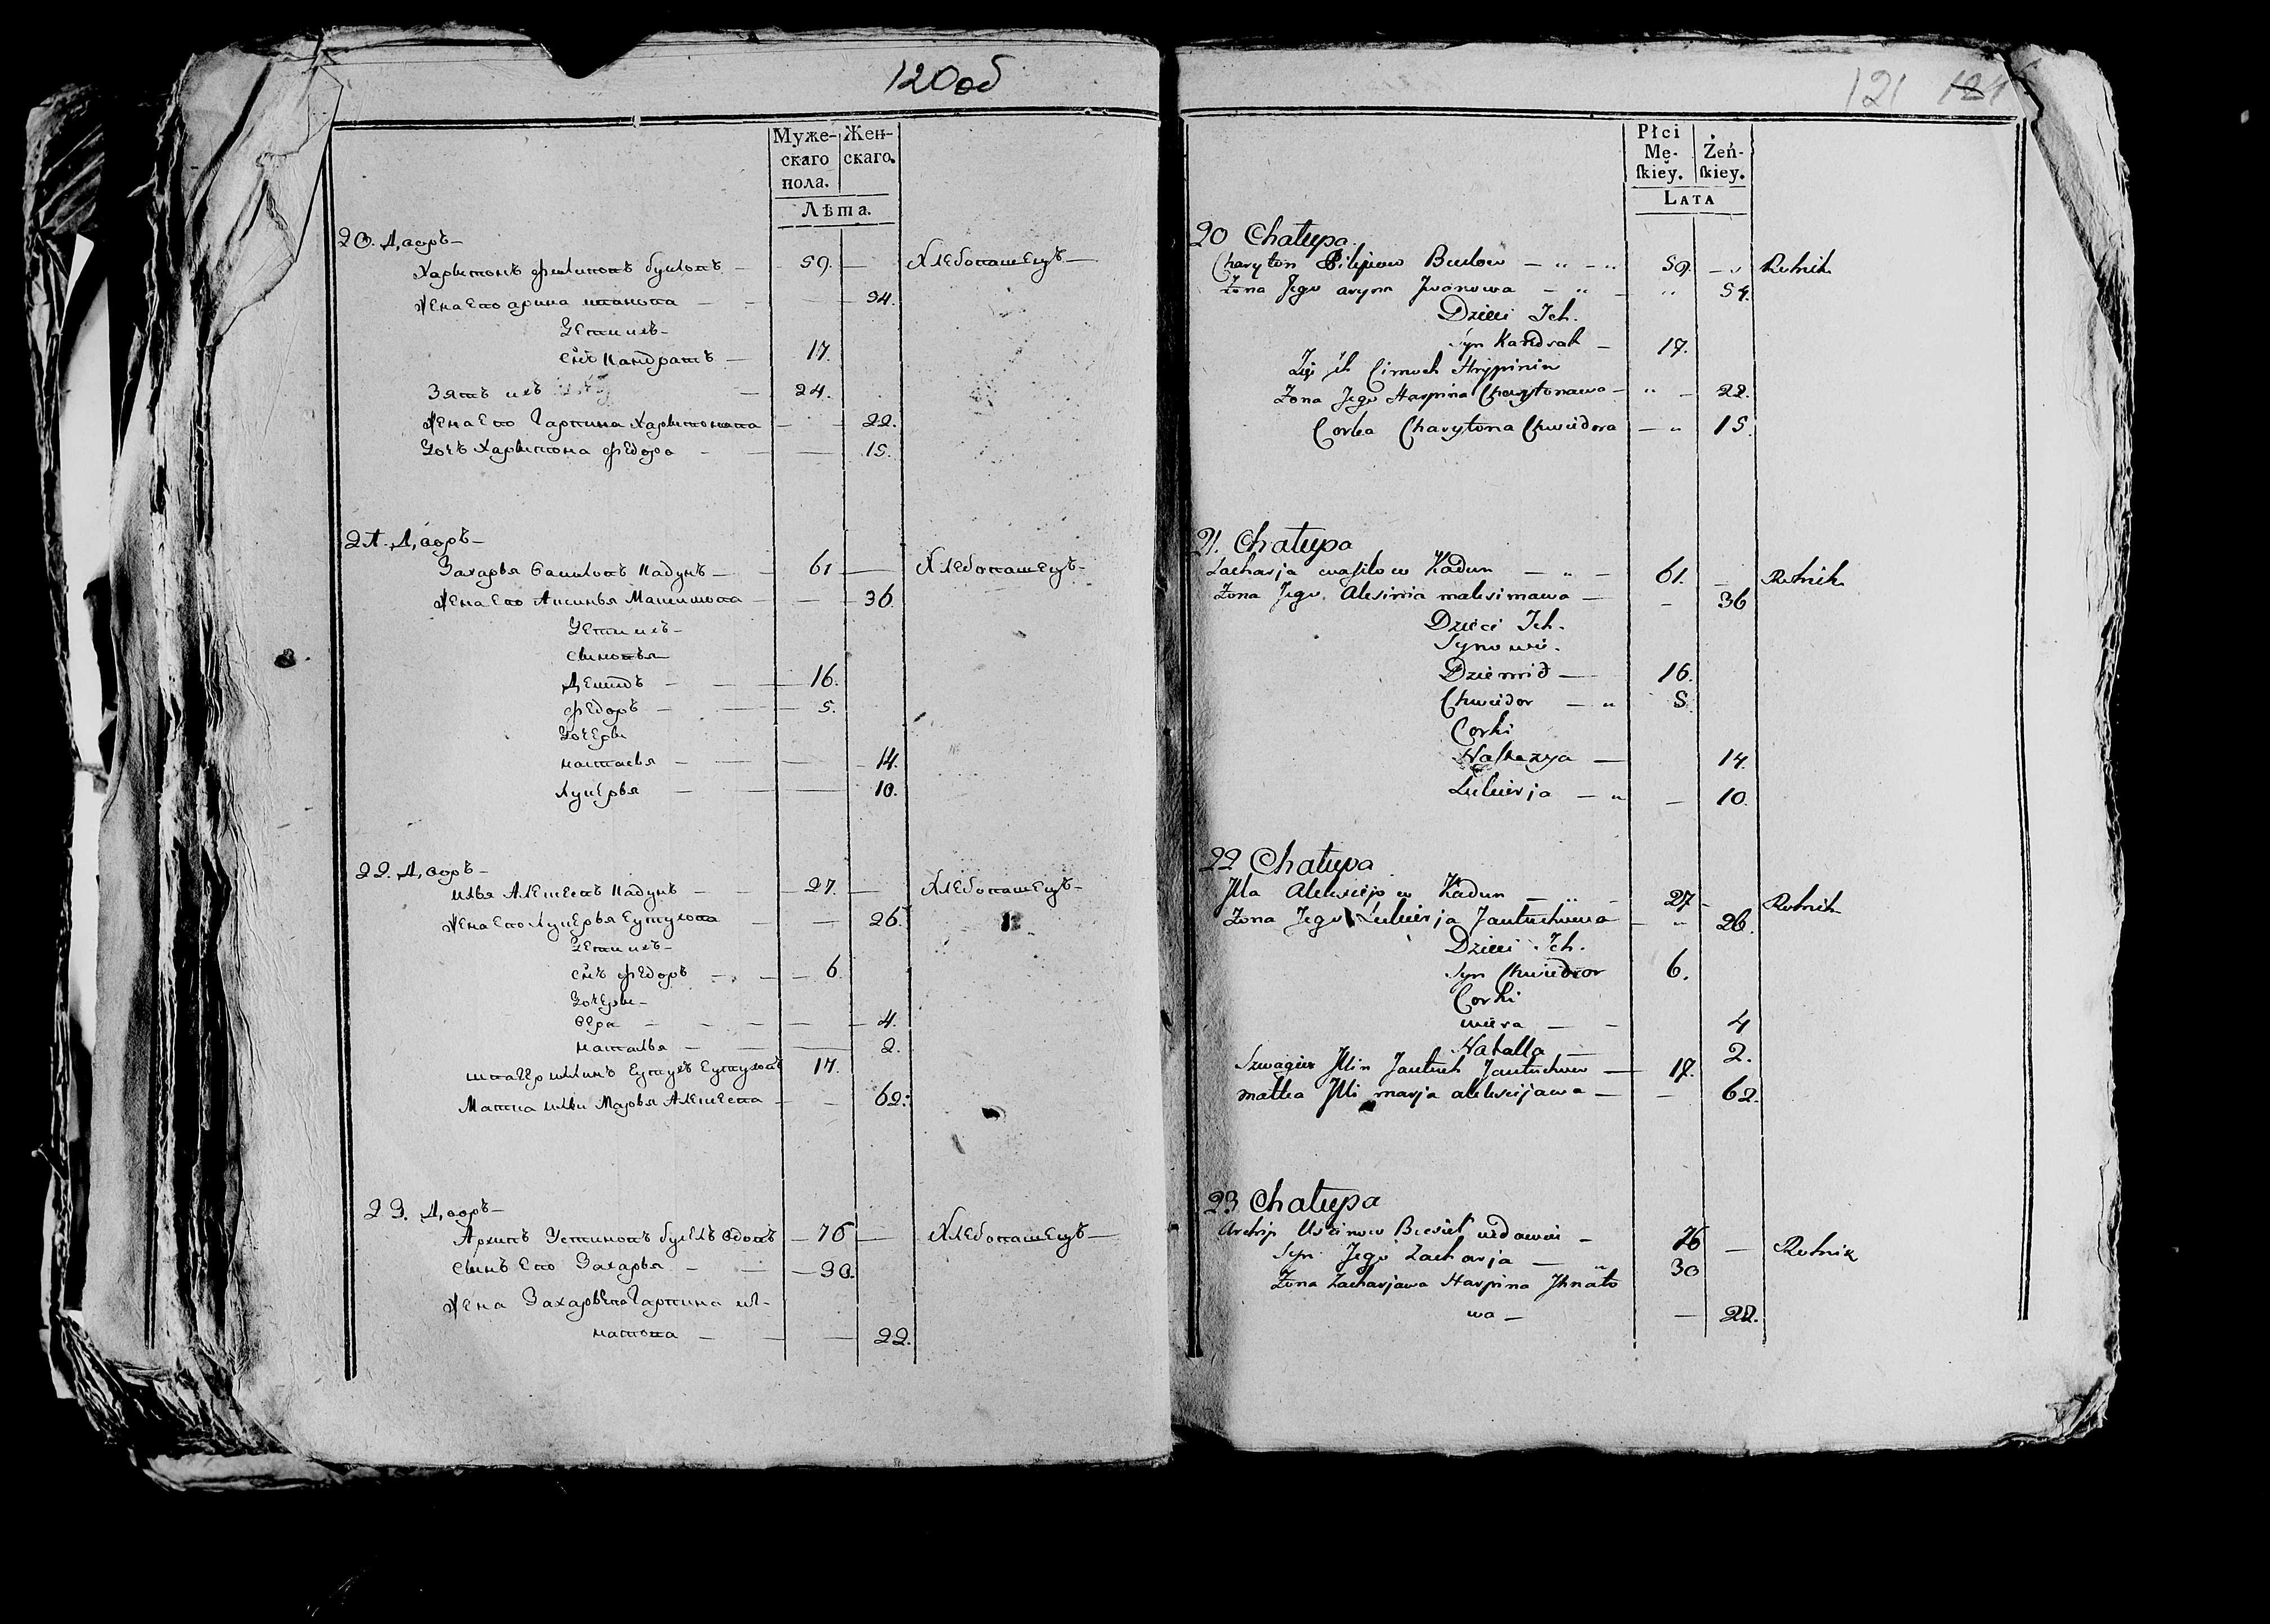 120об
Муже- Жен-
скаго скаго.
пола.
Лѣта.
20. Дворъ
Харитонъ Филиповъ 59. Хлебопашецъ
Жена Его Арина Иванова 54.
Дети ихъ
сынъ Кандратъ 17.
Зять ихъ 24.
Жена Его Гарпина Харитонова 22.
Дочь Харитона Федора 15.
21. Дворъ
Захарья Василовъ Кадунъ 61 Хлебопашецъ
Жена Его Аксинья Максимова 36
Дети ихъ
сыновья
Демидъ 16.
Федоръ 5.
Дочери
настасья 14.
Лукерья 10.
22. Дворъ
илья Алексеевъ Кадунъ 27. Хлебопашецъ
Жена Его Лукерья Евтухова 26.
Дети ихъ
сынъ Федоръ 6
Дочери
вера 4.
наталья 2.
швагер ильинъ Евтухъ Евтуховъ 17.
Матка ильи Марья Алексеева 62.
23. Дворъ
Архипъ Устиновъ вдовъ 76 Хлебопашецъ
сынъ Его Захарья 30.
Жена Захарьева Гарпина иг-
натова 22.
121 121
Płci
Mę- Żeń-
skiey. skiey.
LATA
20 Chałupa
Charyton Filipow 59. Rolnik
Żona Jego aryna Jwanowa 54.
Dzieci Ich.
Syn Kandrat 17.
Zięć Ich Cimoch Hrypinin
Żona Jego Harpina Charytonawa 22.
Corka Charytona Chwiedora 15.
21. Chałupa
Zacharja wasilow Kadun 61. Rolnik
Żona Jego Aksinia maksimawa 36
Dzieci Ich.
Synowie.
Dziemid 16.
Chwiedor 5
Corki
Nastazya 14.
Lukierja 10.
22 Chałupa
Jlla Aleksiejow Kadun 27 Rolnik
Żona Jego Lukierja Jautuchowa 26.
Dzieci Ich.
Syn Chwiedzor 6.
Corki
wiera 4
Natalla 2.
Szwagier Jllin Jautuch Jautuchow 17.
matka Jlli marja aleksiejawa 62.
23 Chałupa
Archip Uscinow wdowiec 76 Rolnik
Syn Jego Zacharja 30
Żona Zacharjawa Harpina Jhnato
wa 22.